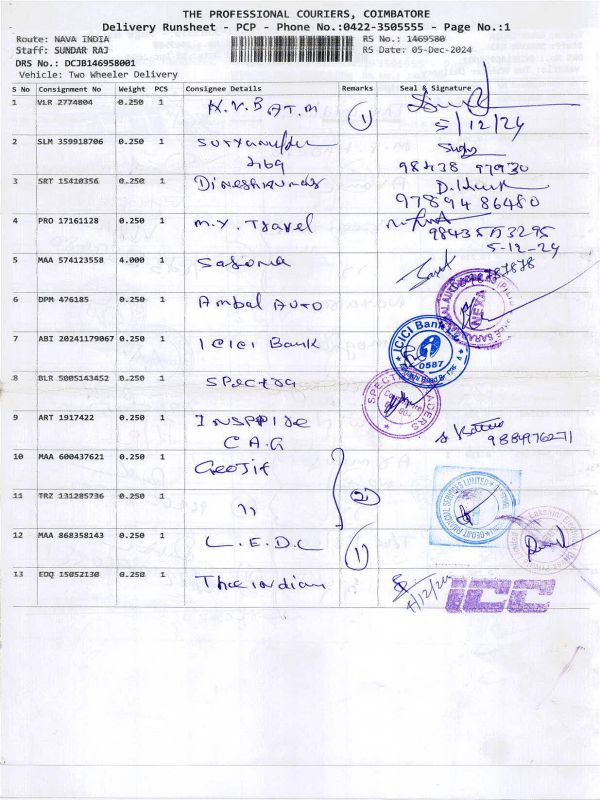 THE PROFESSIONAL COURIERS, COIMBATORE
Delivery Runsheet - PCP - Phone No.:0422-3505555 - Page No.:1
Route: NAVA INDIA
RS No.: 1469580
Staff: SUNDAR RAJ
RS Date: 05-Dec-2024
DRS No.: DCJB146958001
Vehicle: Two Wheeler Delivery
S No Consignment No Weight PCS Consignee Details Remarks Seal & Signature
1 VLR 2774804 0.250 1 K.V.B ATM 1
5/12/24
2 SLM 359918706 0.250 1
98438 97930
3 SRT 15410356 0.250 1 Dineshkumar
97894 86480
4 PRO 17161128 0.250 1 M.Y. Travel
5-12-24
5 MAA 574123558 4.000 1
6 DPM 476185 0.250 1 Ambal Auto
NEXA
7 ABI 20241179067 0.250 1 ICICI Bank
ICICI Bank
0587
8 BLR 5005143452 0.250 1 Spectra
9 ART 1917422 0.250 1
C.A.G
10 MAA 600437621 0.250 1 Geojit
11 TRZ 131285736 0.250 1 " 2
12 MAA 868358143 0.250 1 L.E.D.C 1
13 EDQ 15052130 0.250 1 The indian
ICC